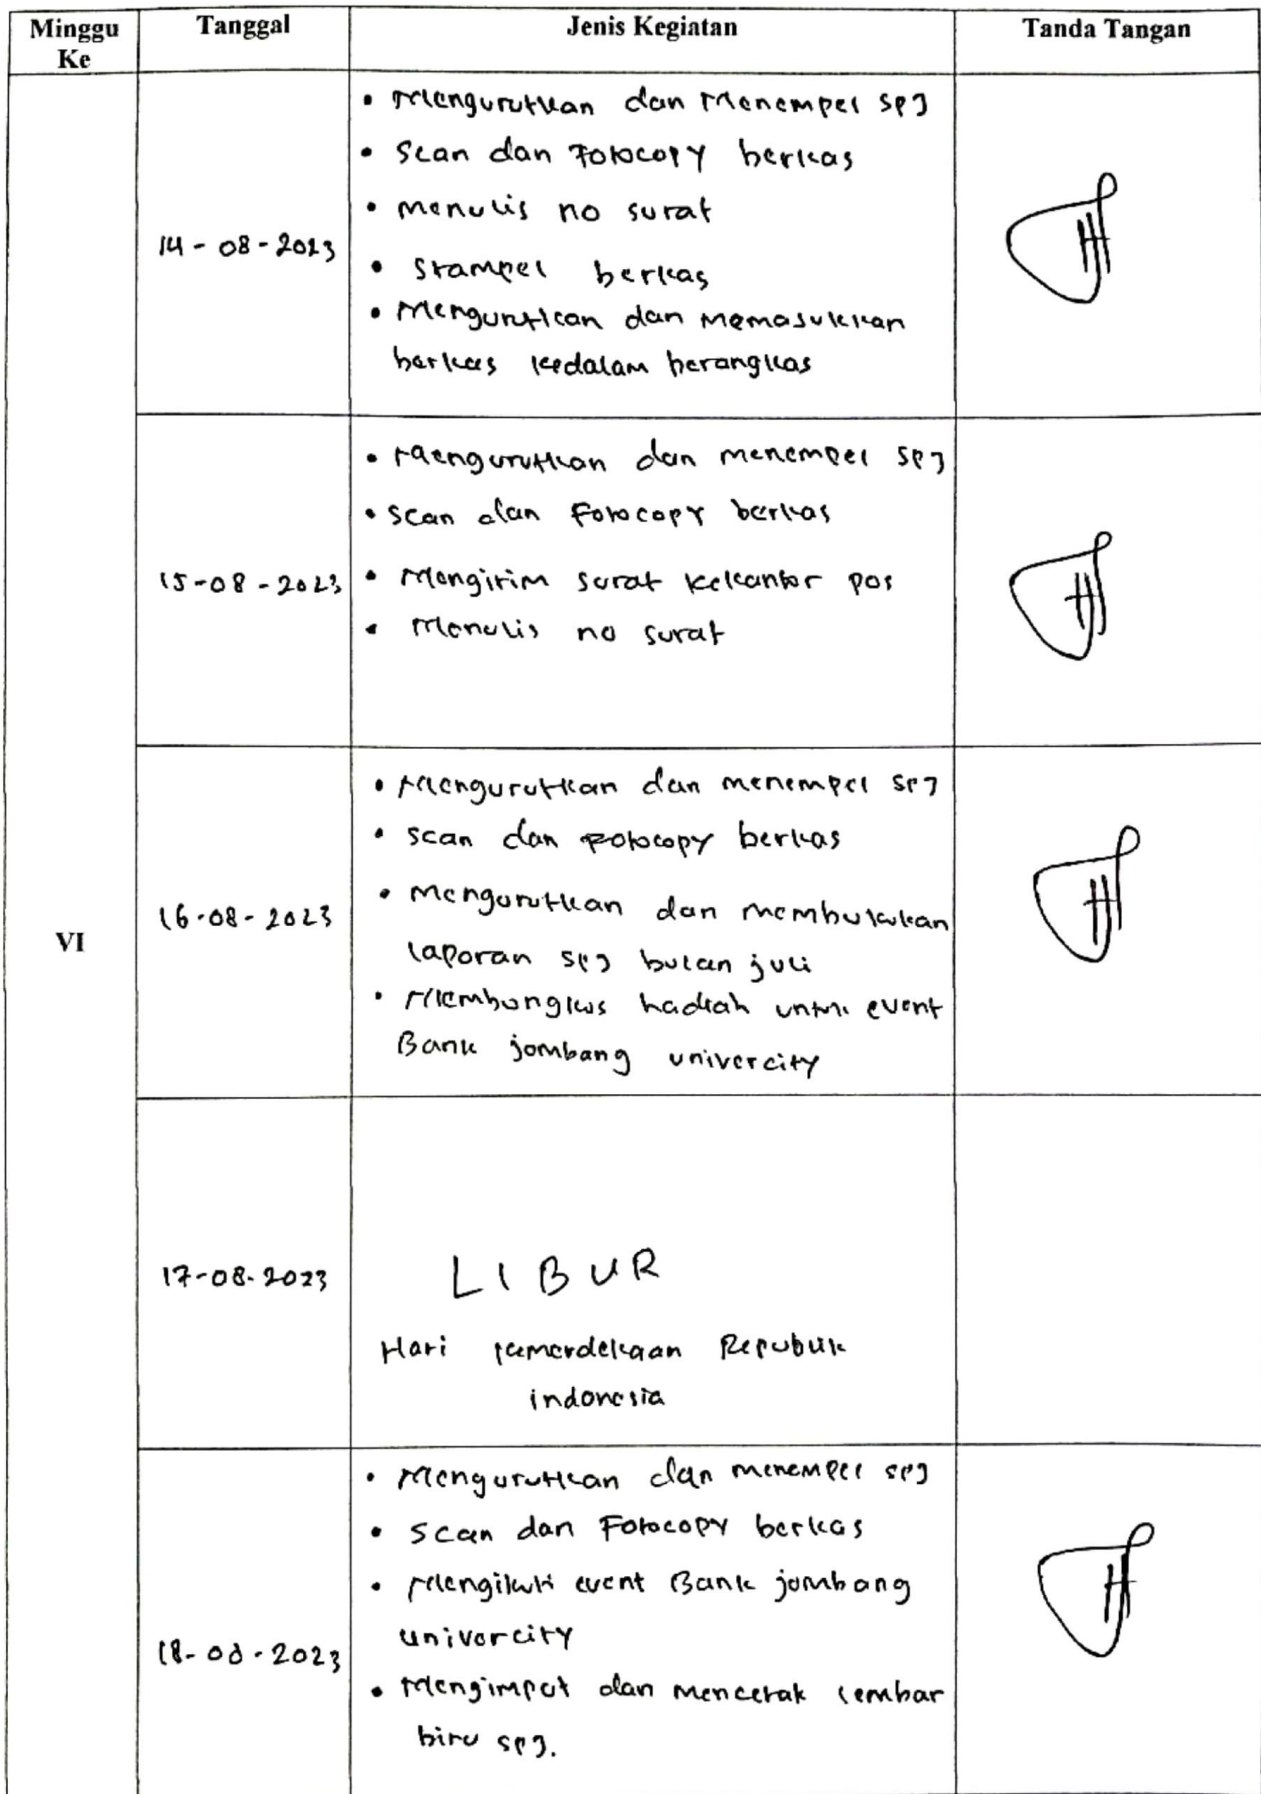 Minggu Ke
Tanggal
Jenis Kegiatan
Tanda Tangan
VI
14-08-2023
• Mengurutkan dan Menempel SPJ
• Scan dan Fotocopy berkas
• menulis no surat
• Stampel berkas
• Mengurutkan dan Memasukkan
berkas kedalam berangkas
15-08-2023
• Mengurutkan dan menempel SPJ
• Scan dan Fotocopy berkas
• Mengirim surat kekantor pos
• Menulis no surat
16-08-2023
• Mengurutkan dan menempel SPJ
• scan dan Fotocopy berkas
• Mengurutkan dan membukukan
laporan SPJ bulan juli
• Membungkus hadiah untuk event
Bank jombang univercity
17-08-2023
LIBUR
Hari kemerdekaan Republik
indonesia
18-08-2023
• Mengurutkan dan menempel SPJ
• Scan dan Fotocopy berkas
• Mengikuti event Bank jombang
univercity
• Mengimput dan mencetak lembar
biru SPJ.